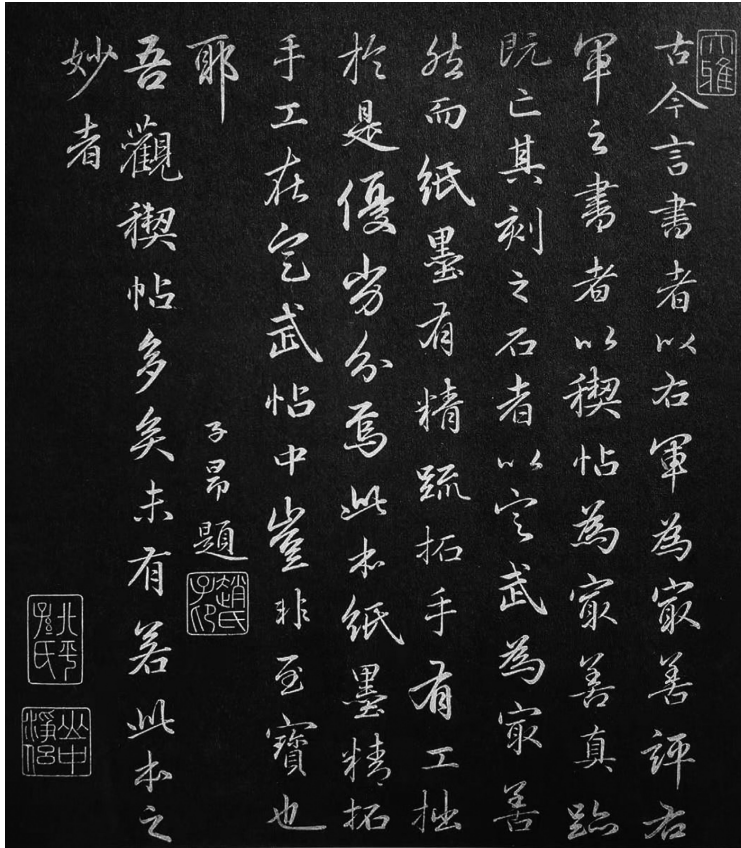 大雅
古今言書者以右軍為㝡善評右
軍之書者以稧帖為㝡善真跡
既亡其刻之石者以定武為㝡善
然而紙墨有精疏拓手有工拙
於是優劣分焉此本紙墨精拓
手工在定武帖中豈非至寶也
耶
子昂題
趙氏子昂
吾觀稧帖多矣未有若此本之
妙者
北平孫氏
山中淨侶